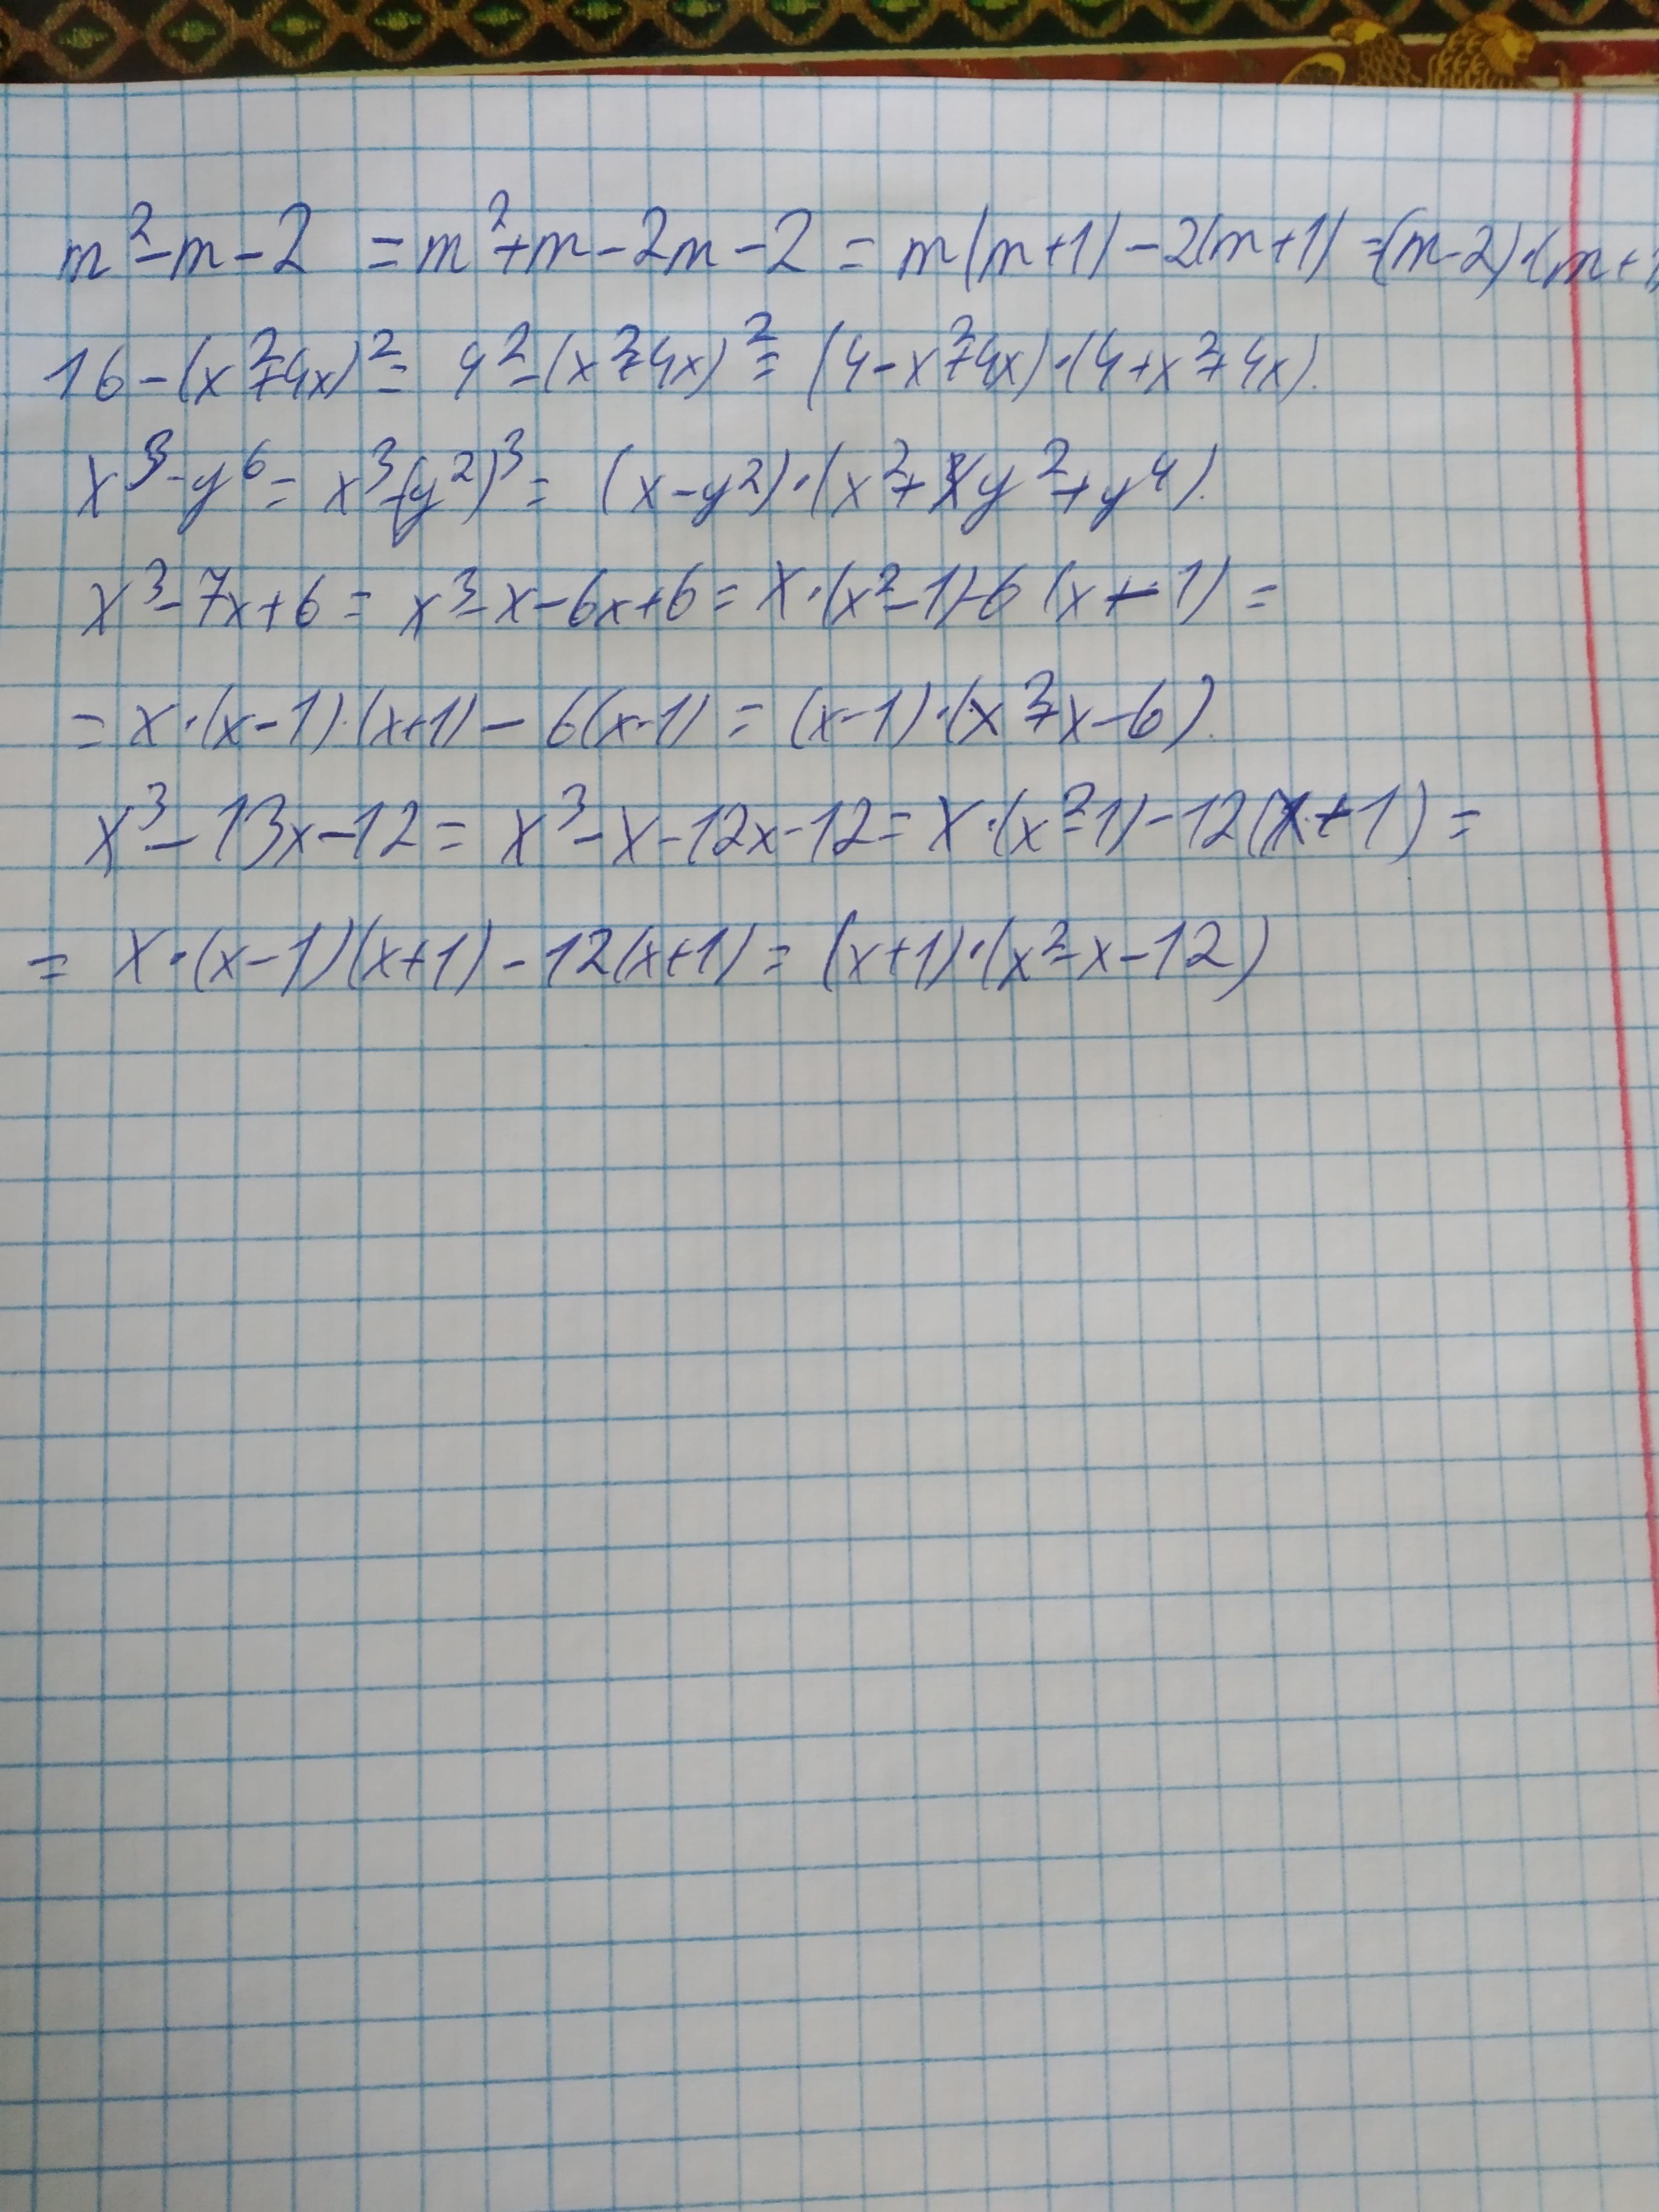 m²-m-2 = m²+m-2m-2 = m(m+1)-2(m+1) =(m-2)·(m+1
16-(x²+4x)²= 4²-(x²+4x)²= (4-x²+4x)·(4+x²+4x).
x³-y⁶= x³-(y²)³= (x-y²)·(x²+xy²+y⁴).
x³-7x+6= x³-x-6x+6= x·(x²-1)-6(x-1)=
= x·(x-1)·(x+1)-6(x-1)= (x-1)·(x²+x-6).
x³-13x-12= x³-x-12x-12= x·(x²-1)-12(x+1)=
= x·(x-1)(x+1)-12(x+1)= (x+1)·(x²-x-12)